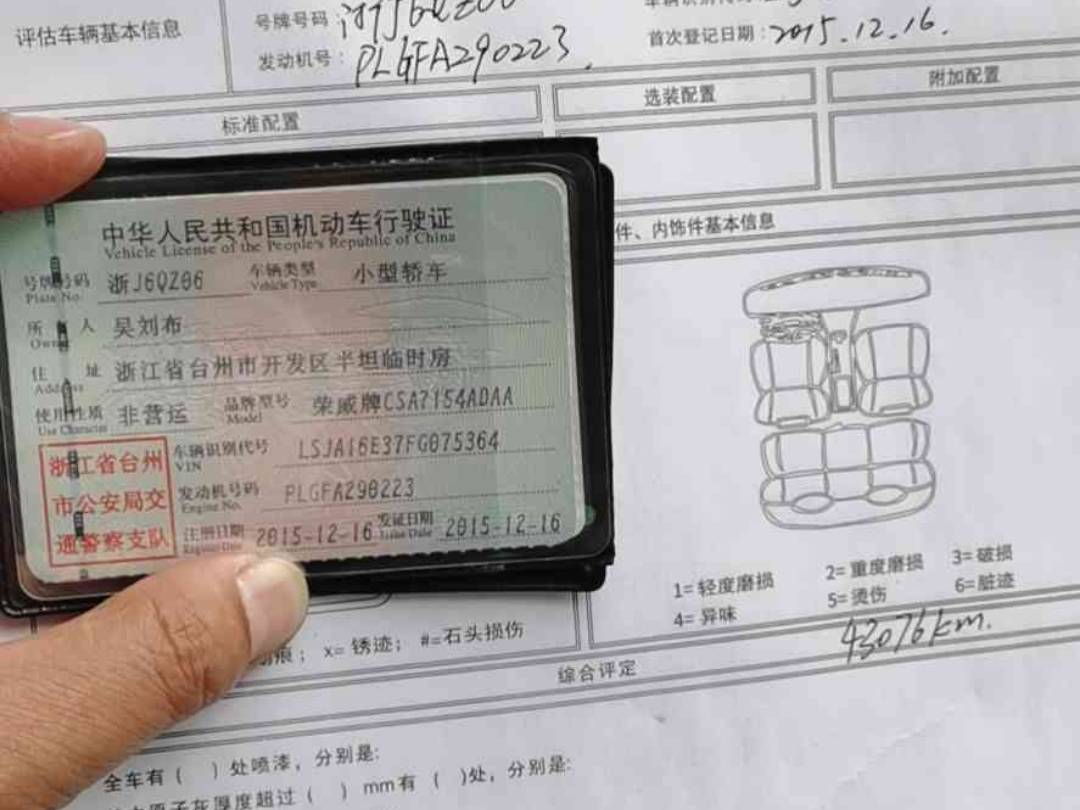 评估车辆基本信息
号牌号码：浙J6QZ06
发动机号：PLGFA290223
首次登记日期：2015.12.16.
标准配置
选装配置
附加配置
件、内饰件基本信息
中华人民共和国机动车行驶证
Vehicle License of the People's Republic of China
号牌号码 浙J6QZ06 车辆类型 小型轿车
Plate No. Vehicle Type
所有人 吴刘布
Owner
住址 浙江省台州市开发区半坦临时房
Address
使用性质 非营运 品牌型号 荣威牌CSA7154ADAA
Use Character Model
浙江省台州
市公安局交
通警察支队
车辆识别代号 LSJA16E37FG075364
VIN
发动机号码 PLGFA290223
Engine No.
注册日期 2015-12-16 发证日期 2015-12-16
Register Date Issue Date
1=轻度磨损 2=重度磨损 3=破损
4=异味 5=烫伤 6=脏迹
43076km.
痕； x=锈迹； #=石头损伤
综合评定
全车有（ ）处喷漆，分别是:
原子灰厚度超过（ ）mm有（ ）处，分别是: